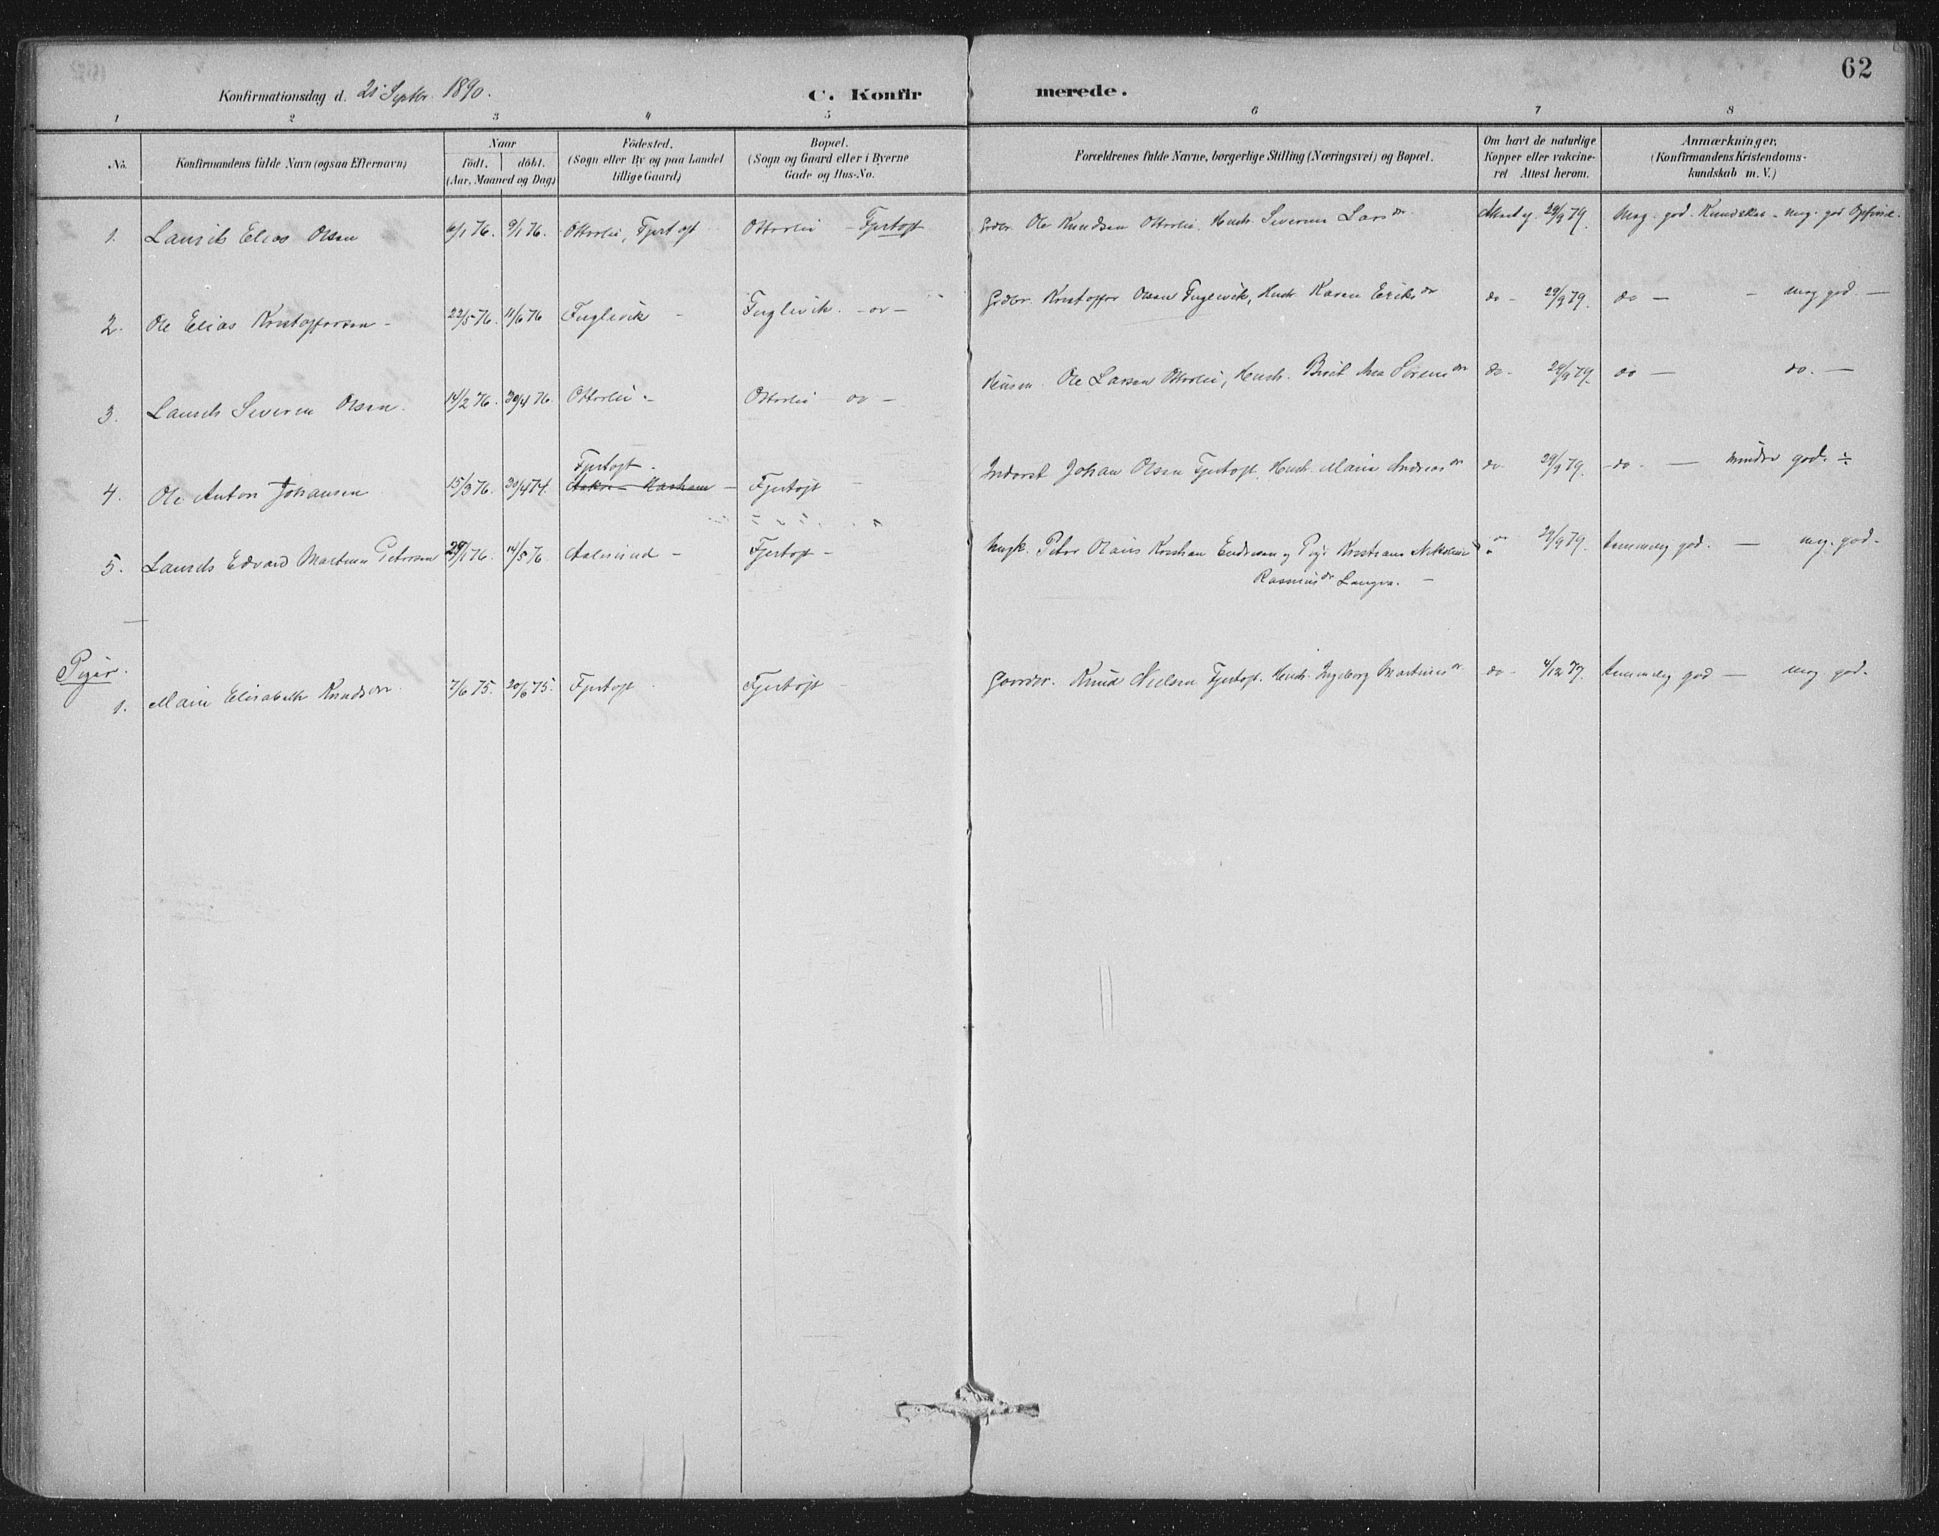 62
Konfirmationsdag d. Septbr. 1890.
C. Konfirmerede.
1 2 3 4 5 6 7 8
No.
Konfirmandens fulde Navn (ogsaa Efternavn)
Naar
födt. döbt.
(Aar, Maaned og Dag)
Födested.
(Sogn eller By og paa Landet
tillige Gaard)
Bopæl.
(Sogn og Gaard eller i Byerne
Gade og Hus-No.
Forældrenes fulde Navne, borgerlige Stilling (Næringsvei) og Bopæl.
Om havt de naturlige
Kopper eller vakcine-
ret Attest herom.
Anmærkninger,
(Konfirmandens Kristendoms-
kundskab m. V.)
1. Laurits Elias Olsen 6/1 76. 9/1 76. Otterlei, Fjertoft Otterlei - Fjertoft Ole Knudsen Otterlei, Hustr. Severine Larsdr 29/9 79. Meg. god. Kundskab - meg. god
2. Ole Elias Kristoffersen - 22/5 76. 11/6 76 Fuglevik - Fuglevik. - do - Kristoffer Olsen Fuglevik, Hustr. Karen Eriksdr do - 29/9 79. do - - meg god -
3. Laurits Severin Olsen. 14/2 76. 30/4 76. Otterlei - Otterlei - do - Ole Larsen Otterlei, Hustr. Birit Ana Sörensdr do - 29/9 79. do - do. -
Fjertoft -
4. Ole Anton Johansen 15/3 76. 30/4 74. Fjertoft - Inderst Johan Olsen Fjertoft. Hustr. Marie Andreasdr do - 29/9 79. - do - - mindre god. ÷
5. Laurits Edvard Martinus Petersen 29/1 76. 14/5 76. Aalesund - Fjertoft - Ungk. Peter Olaus Kristian Endresen og Pige Kristiane Nikoline 29/9 79. temmelig god. - meg. god -
Rasmusdr Langva. -
Piger.
1. Marie Elisabeth Knudsdr. 7/6 75. 20/6 75. Fjertoft Fjertoft - Gaardbr. Knud Nielsen Fjertoft. Hustr. Ingeborg Martinusdr do - 4/12 77. temmelig god - meg god -